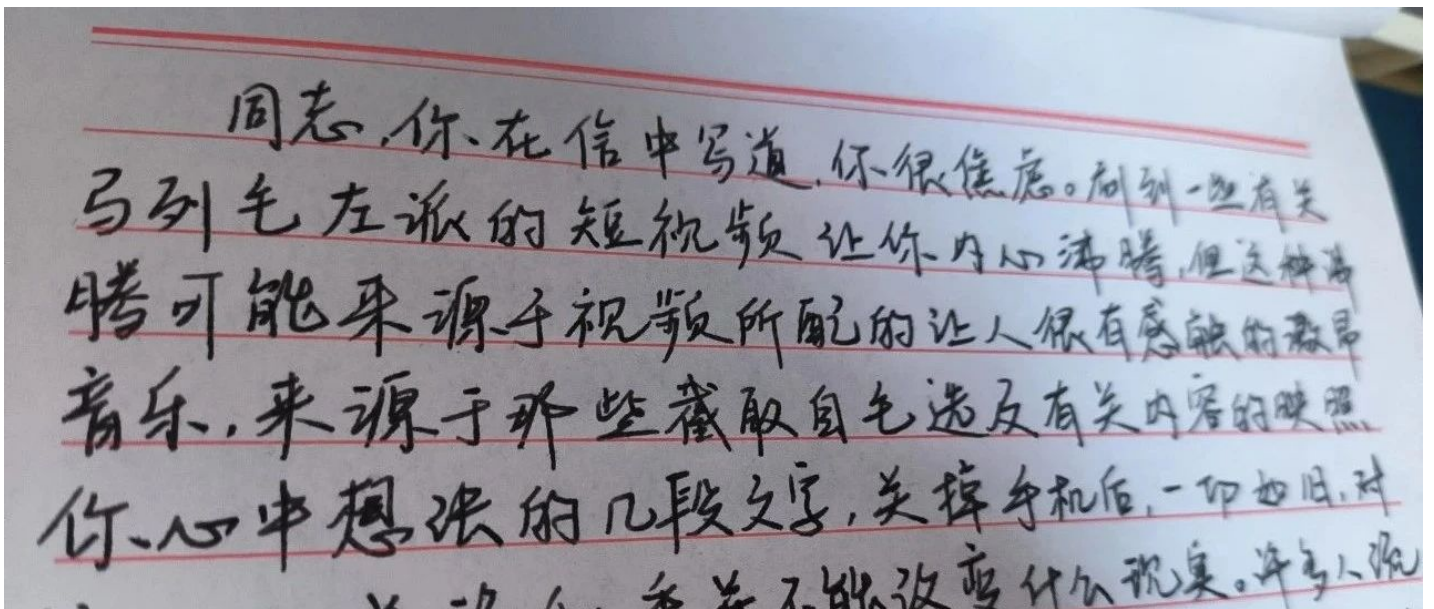 同志,你在信中写道,你很焦虑。刷到一些有关
马列毛左派的短视频让你内心沸腾,但这种沸
腾可能来源于视频所配的让人很有感触的激昂
音乐,来源于那些截取自毛选及有关内容的映照
你心中想法的几段文字,关掉手机后,一切如旧,对
不能改变什么现实。许多人